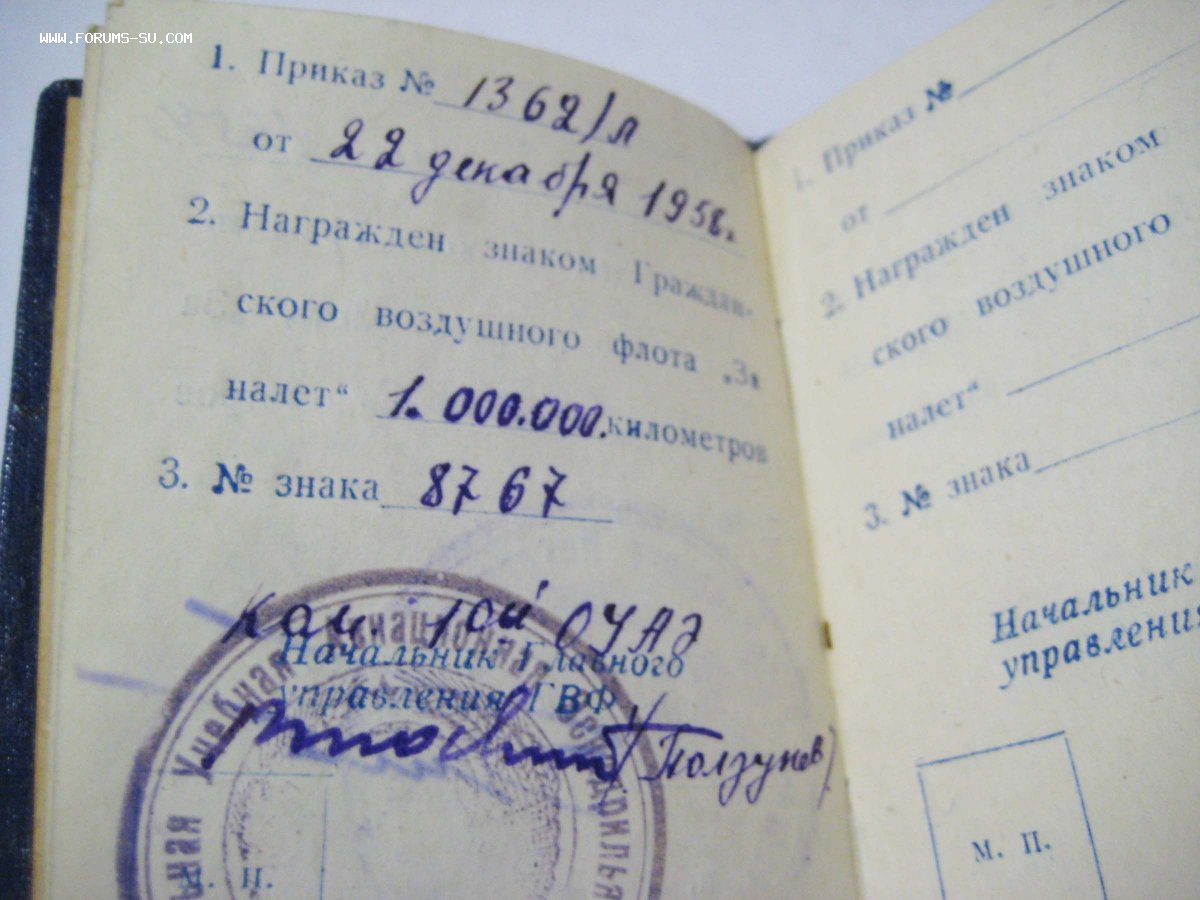 WWW.FORUMS-SU.COM
1. Приказ № 1362/л
от 22 декабря 1958г.
2. Награжден знаком Граждан-
ского воздушного флота „За
налет“ 1.000.000. километров
3. № знака 8767
Ком. 10й ОУАЭ
Начальник Главного
управления ГВФ
(Ползунев)
Учебная Авиационная Эскадрилья
М. П.
1. Приказ №
от
2. Награжден знаком
ского воздушного
налет“
3. № знака
Начальник
управления
М. П.